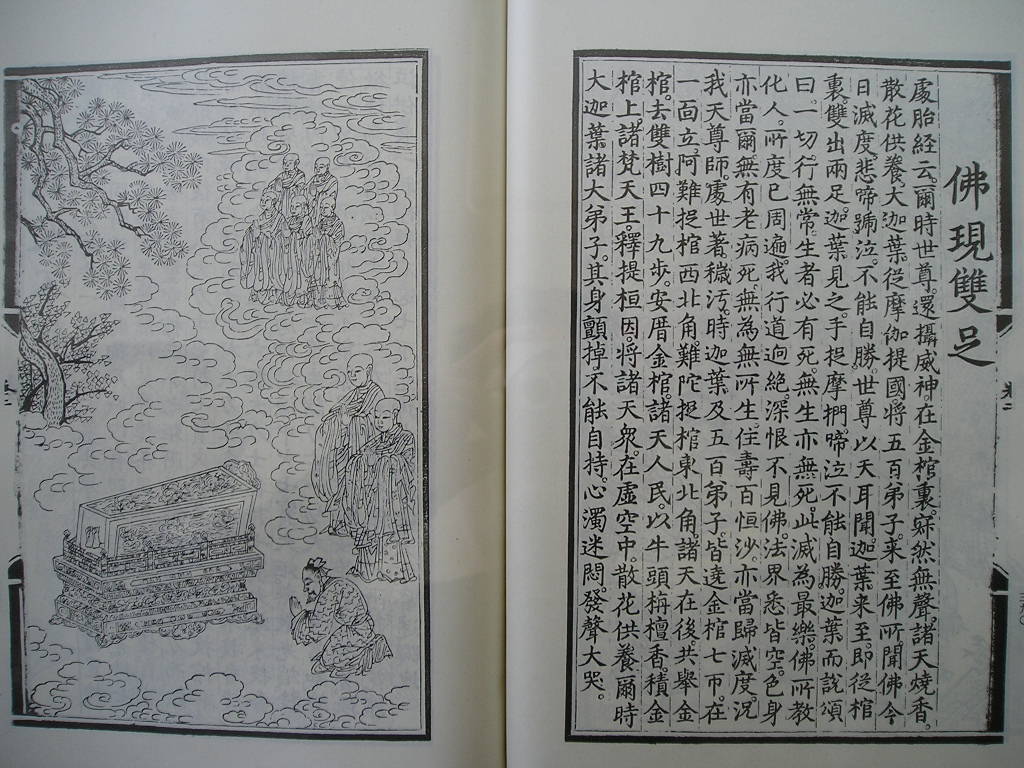 佛現雙足
處胎經云。爾時世尊。還攝威神。在金棺裏。寂然無聲。諸天燒香。
散花供養。大迦葉。從摩伽提國。將五百弟子。來至佛所。聞佛今
日滅度。悲啼號泣。不能自勝。世尊以天耳聞迦葉來至。即從棺
裏。雙出兩足。迦葉見之。手捉摩捫。啼泣不能自勝。迦葉而說頌
曰。一切行無常。生者必有死。無生亦無死。此滅為最樂。佛所教
化人。所度已周遍。我行道逈絕。深恨不見佛。法界悉皆空。色身
亦當爾。無有老病死。無為無所生。住壽百恒沙。亦當歸滅度。況
我天尊師。處世著穢汚。時迦葉及五百弟子。皆遶金棺七帀。在
一面立。阿難捉棺西北角。難陀捉棺東北角。諸天在後。共舉金
棺。去雙樹四十九步。安厝金棺。諸天人民。以牛頭栴檀香。積金
棺上。諸梵天王。釋提桓因。將諸天眾。在虛空中。散花供養。爾時
大迦葉諸大弟子。其身顫掉。不能自持。心濁迷悶。發聲大哭。
卷二